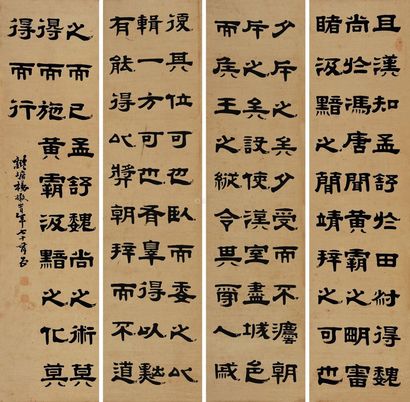 且漢知孟舒於田叔得魏
尚於馮唐聞黃霸之明審
睹汲黯之簡靖拜之可也
少斥之矣少受而不遷朝
斥之矣設使漢室盡城邑
而侯王之縱令其爭人戚
復其位可也臥而委之以
輯一方可也有罪得以黜
有能得以獎朝拜而不道
之而已孟舒魏尚之術莫
得而施黃霸汲黯之化莫
得而行